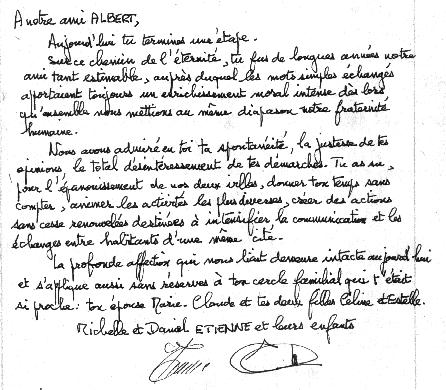 A notre ami ALBERT,
Aujourd'hui tu termines une étape.
Sur ce chemin de l'éternité, tu fus de longues années notre
ami tant estimable, auprès duquel les mots simples échangés
apportaient toujours un enrichissement moral intense dès lors
qu'ensemble nous mettions au même diapason notre fraternité
humaine.
Nous avons admiré en toi ta spontanéité, la justesse de tes
opinions, le total désintéressement de tes démarches. Tu as su,
pour l'épanouissement de nos deux villes, donner ton temps sans
compter, animer les activités les plus diverses, créer des actions
sans cesse renouvelées destinées à intensifier la communication et les
échanges entre habitants d'une même cité.
La profonde affection qui nous liait demeure intacte aujourd'hui
et s'applique aussi sans réserves à ton cercle familial qui t'était
si proche : ton épouse Marie-Claude et tes deux filles Céline et Estelle.
Michelle et Daniel ETIENNE et leurs enfants